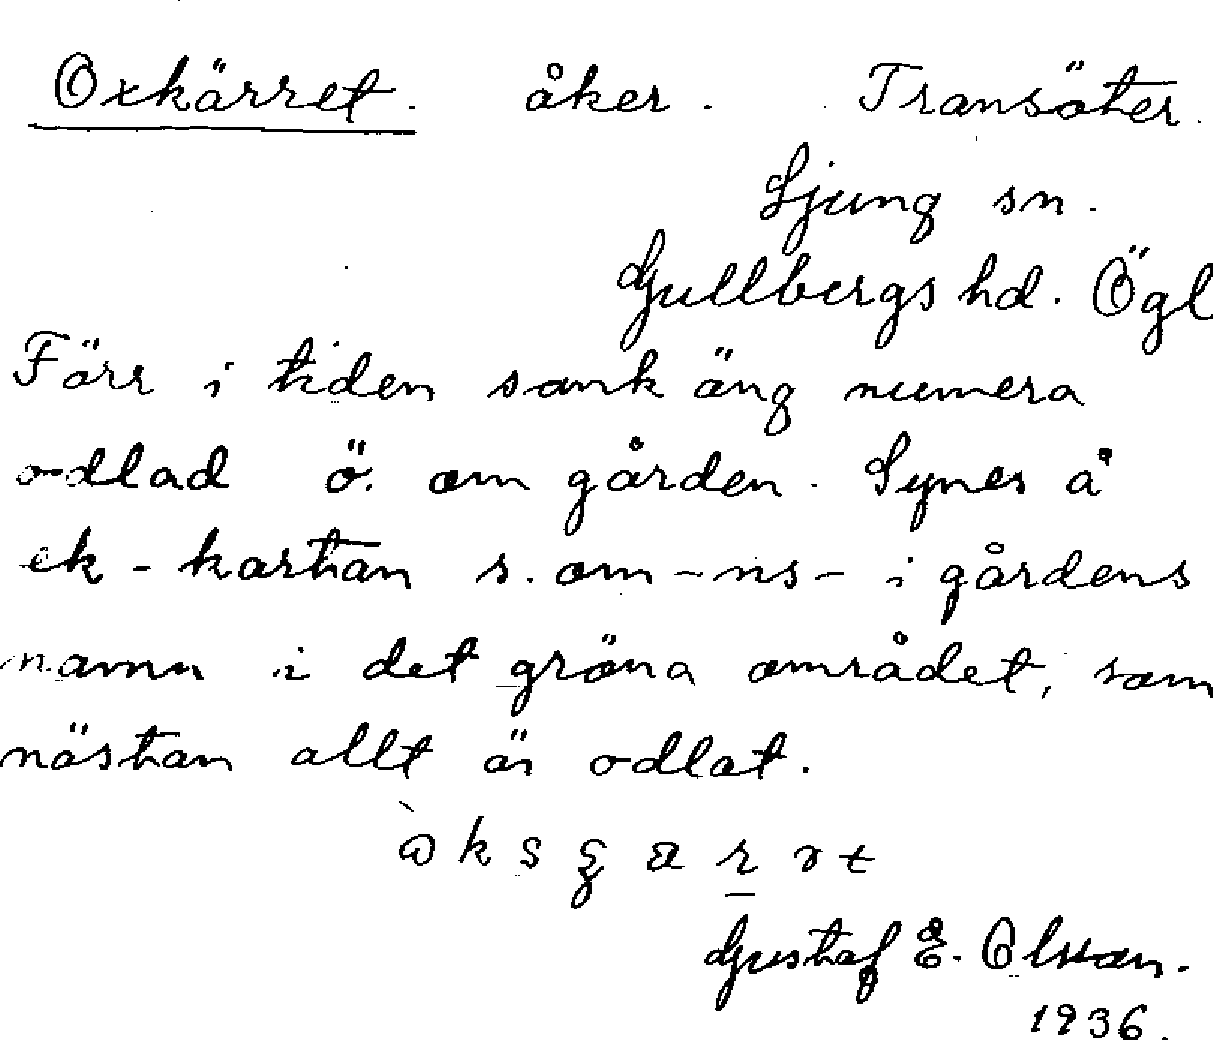 Oxkärret. åker. Transäter.
Ljung sn.
Gullbergs hd. Ögl
Förr i tiden sank äng numera
odlad ö. om gården. Synes å
ek-kartan s. om -ns- i gårdens
namn i det gröna området, som
nästan allt är odlat.
Gustaf E. Olsson.
1936.